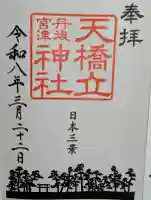 奉拝
天橋立
神社
丹後
宮津
日本三景
令和八年三月二十二日